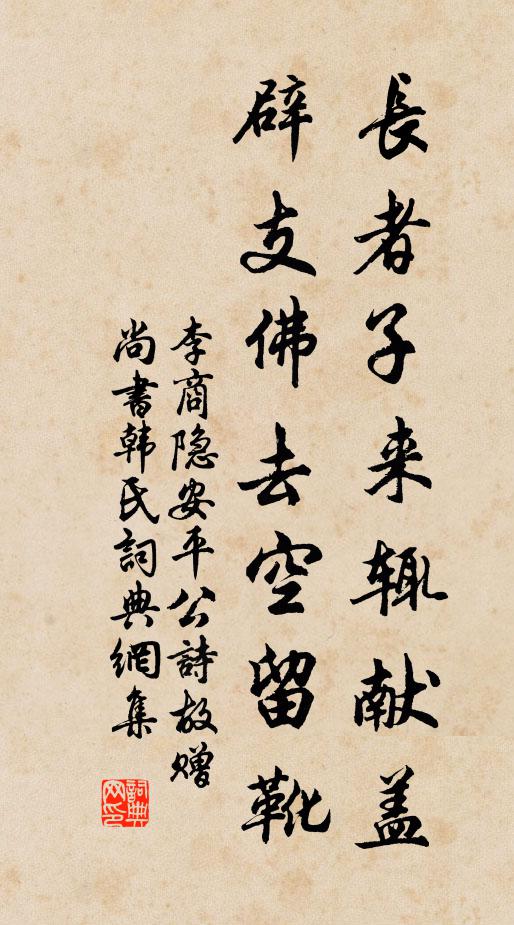 長者子来輙献盖
辟支佛去空留靴
李商隐安平公詩故赠
尚書韩氏詞典網集
詞典
网印